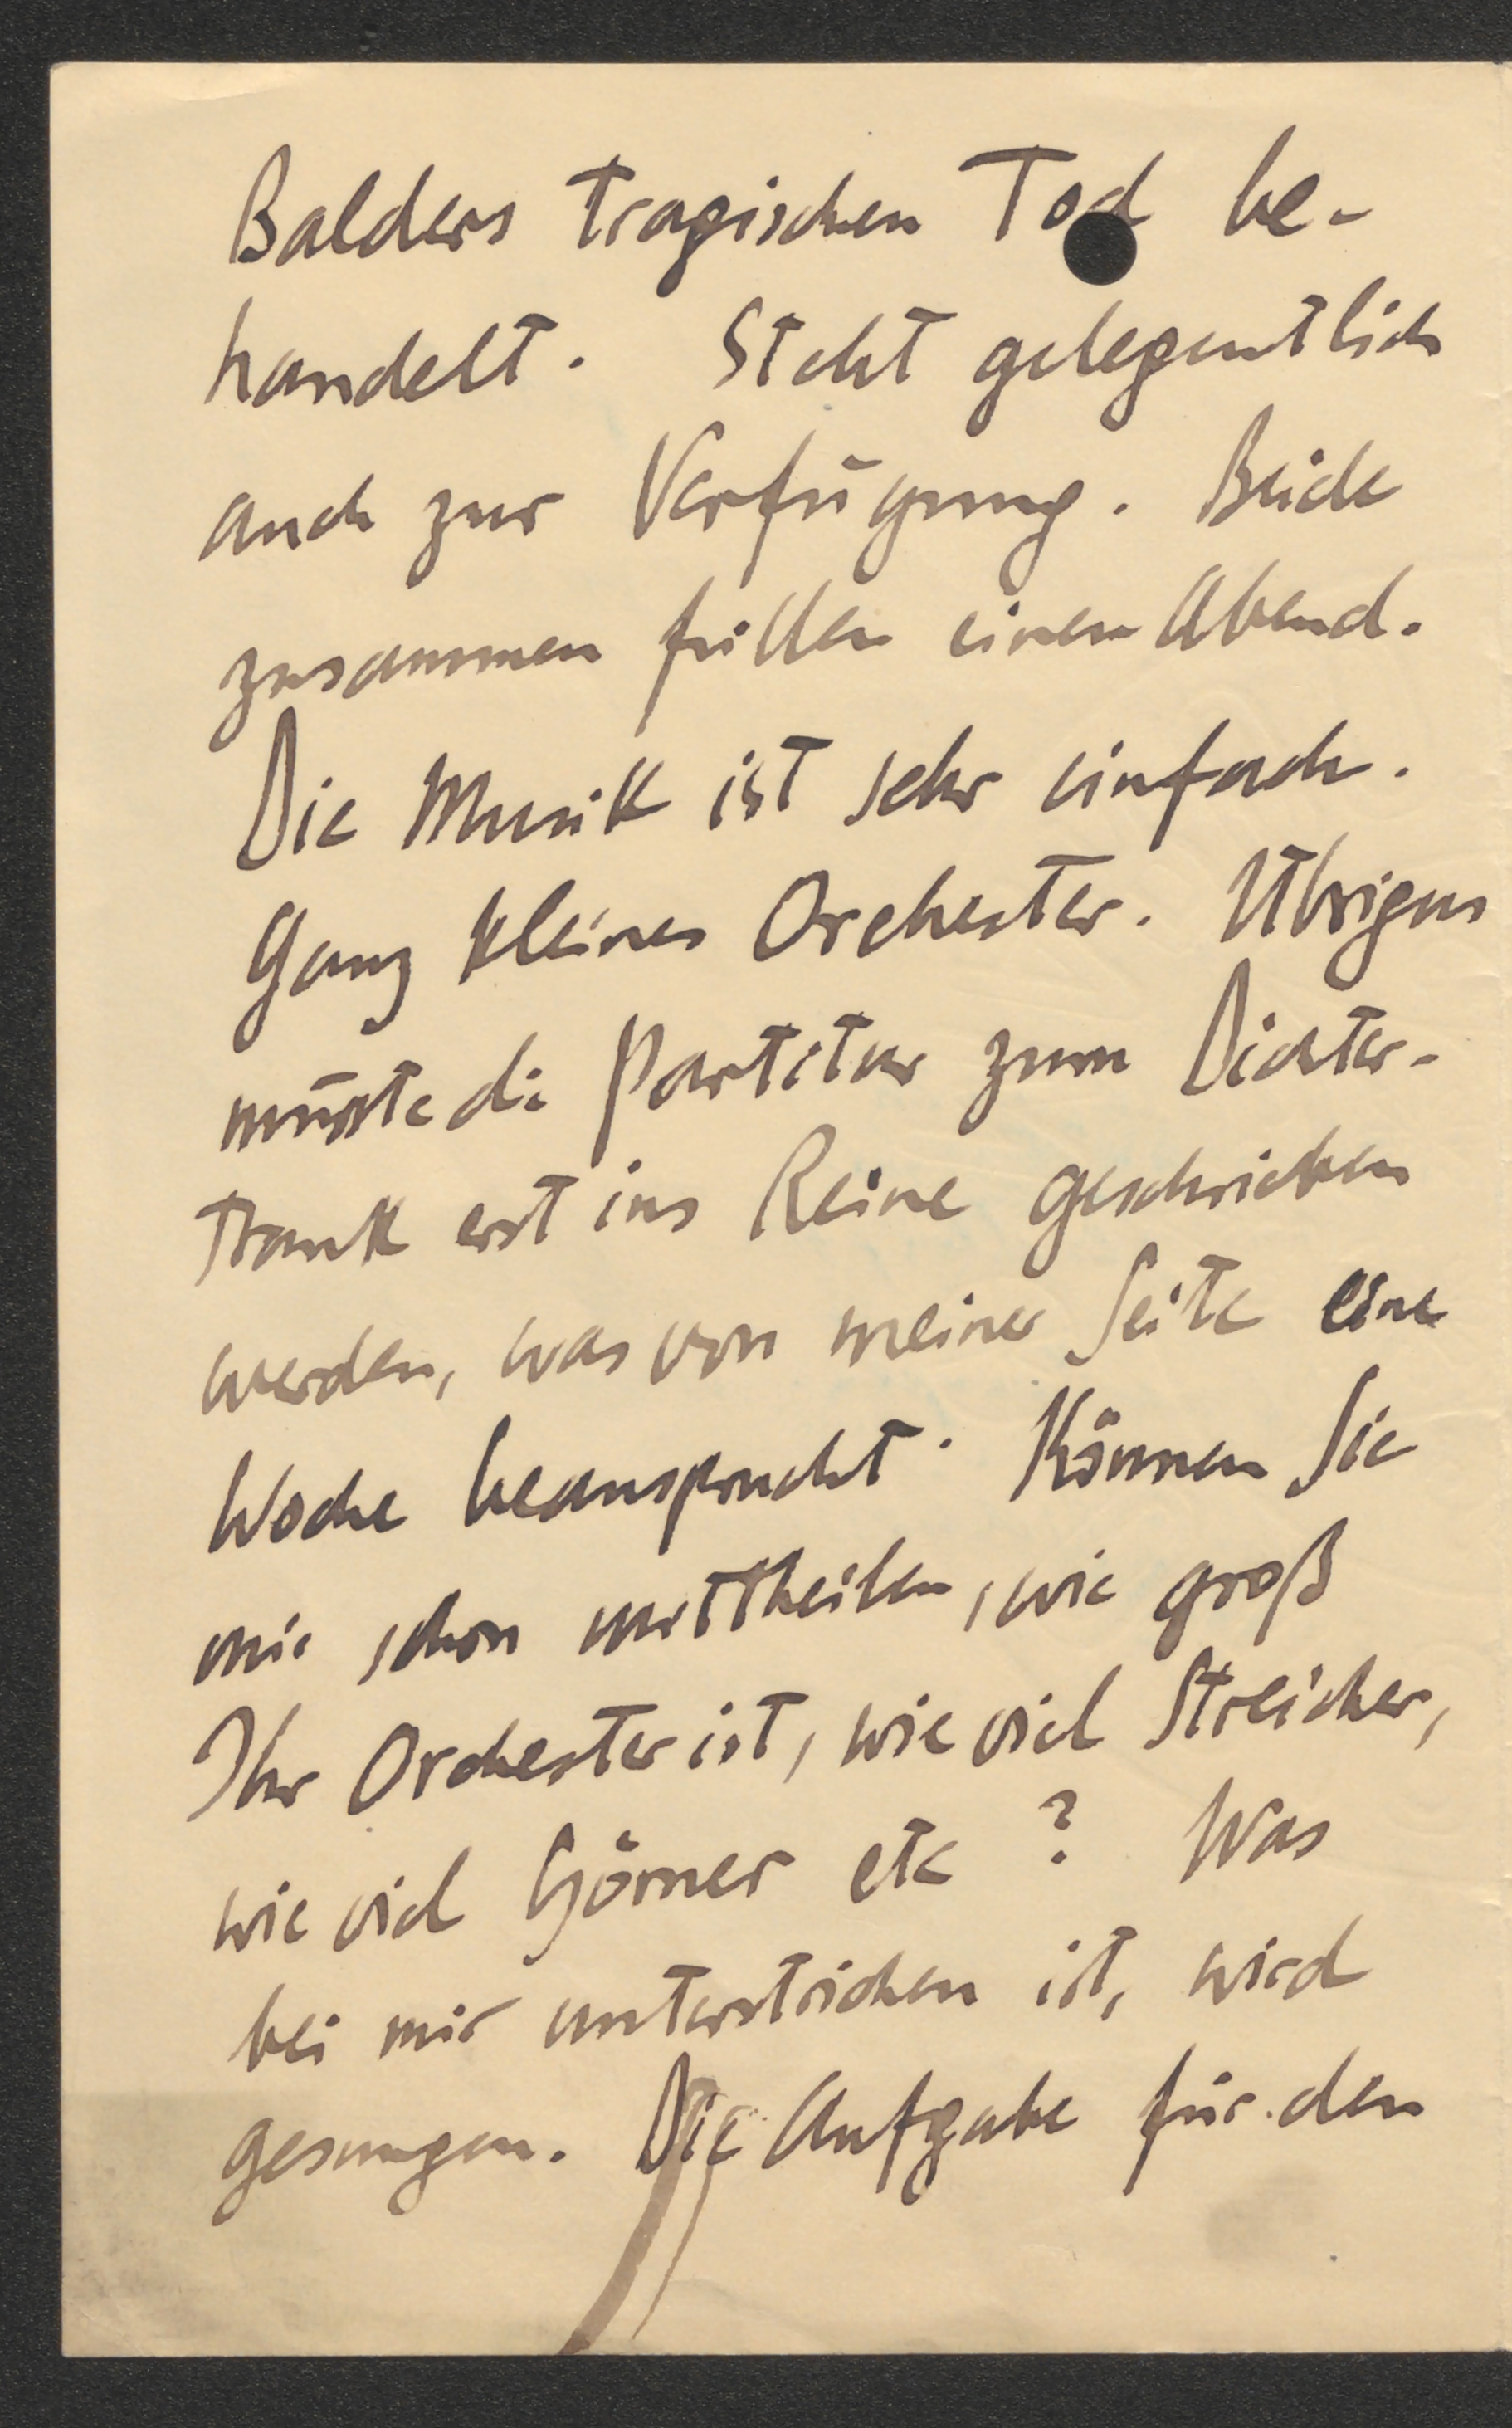 Balders tragischen Tod be-
handelt. Steht gelegentlich
auch zur Verfügung. Beide
zusammen füllen einen Abend.
Die Musik ist sehr einfach.
Ganz kleines Orchester. Übrigens
müsste die Partitur zum Dichter-
trank erst ins Reine geschrieben
werden, was von meiner Seite eine
Woche beansprucht. Können Sie
mir schon mittheilen, wie groß
Ihr Orchester ist, wie viel Streicher,
wie viel Hörner etc? Was
bei mir unterstrichen ist, wird
gesungen. Die Aufgabe für den